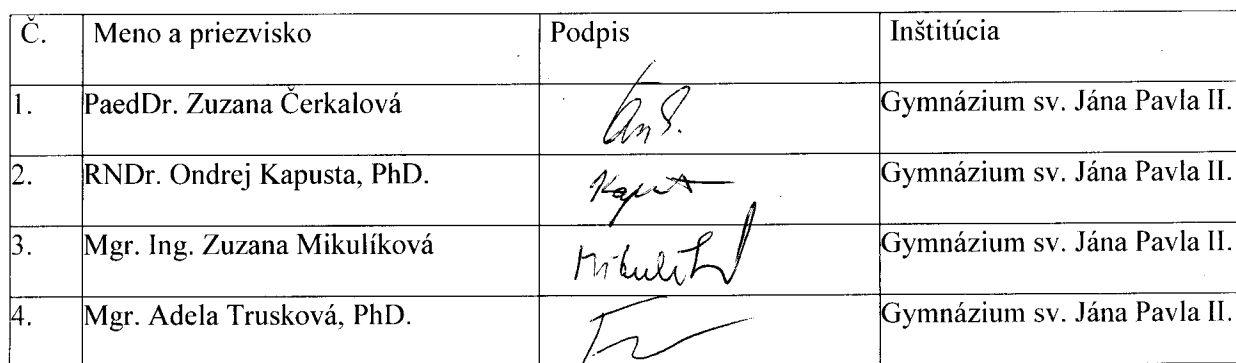 Č. Meno a priezvisko Podpis Inštitúcia
1. PaedDr. Zuzana Čerkalová Gymnázium sv. Jána Pavla II.
2. RNDr. Ondrej Kapusta, PhD. Gymnázium sv. Jána Pavla II.
3. Mgr. Ing. Zuzana Mikulíková Gymnázium sv. Jána Pavla II.
4. Mgr. Adela Trusková, PhD. Gymnázium sv. Jána Pavla II.